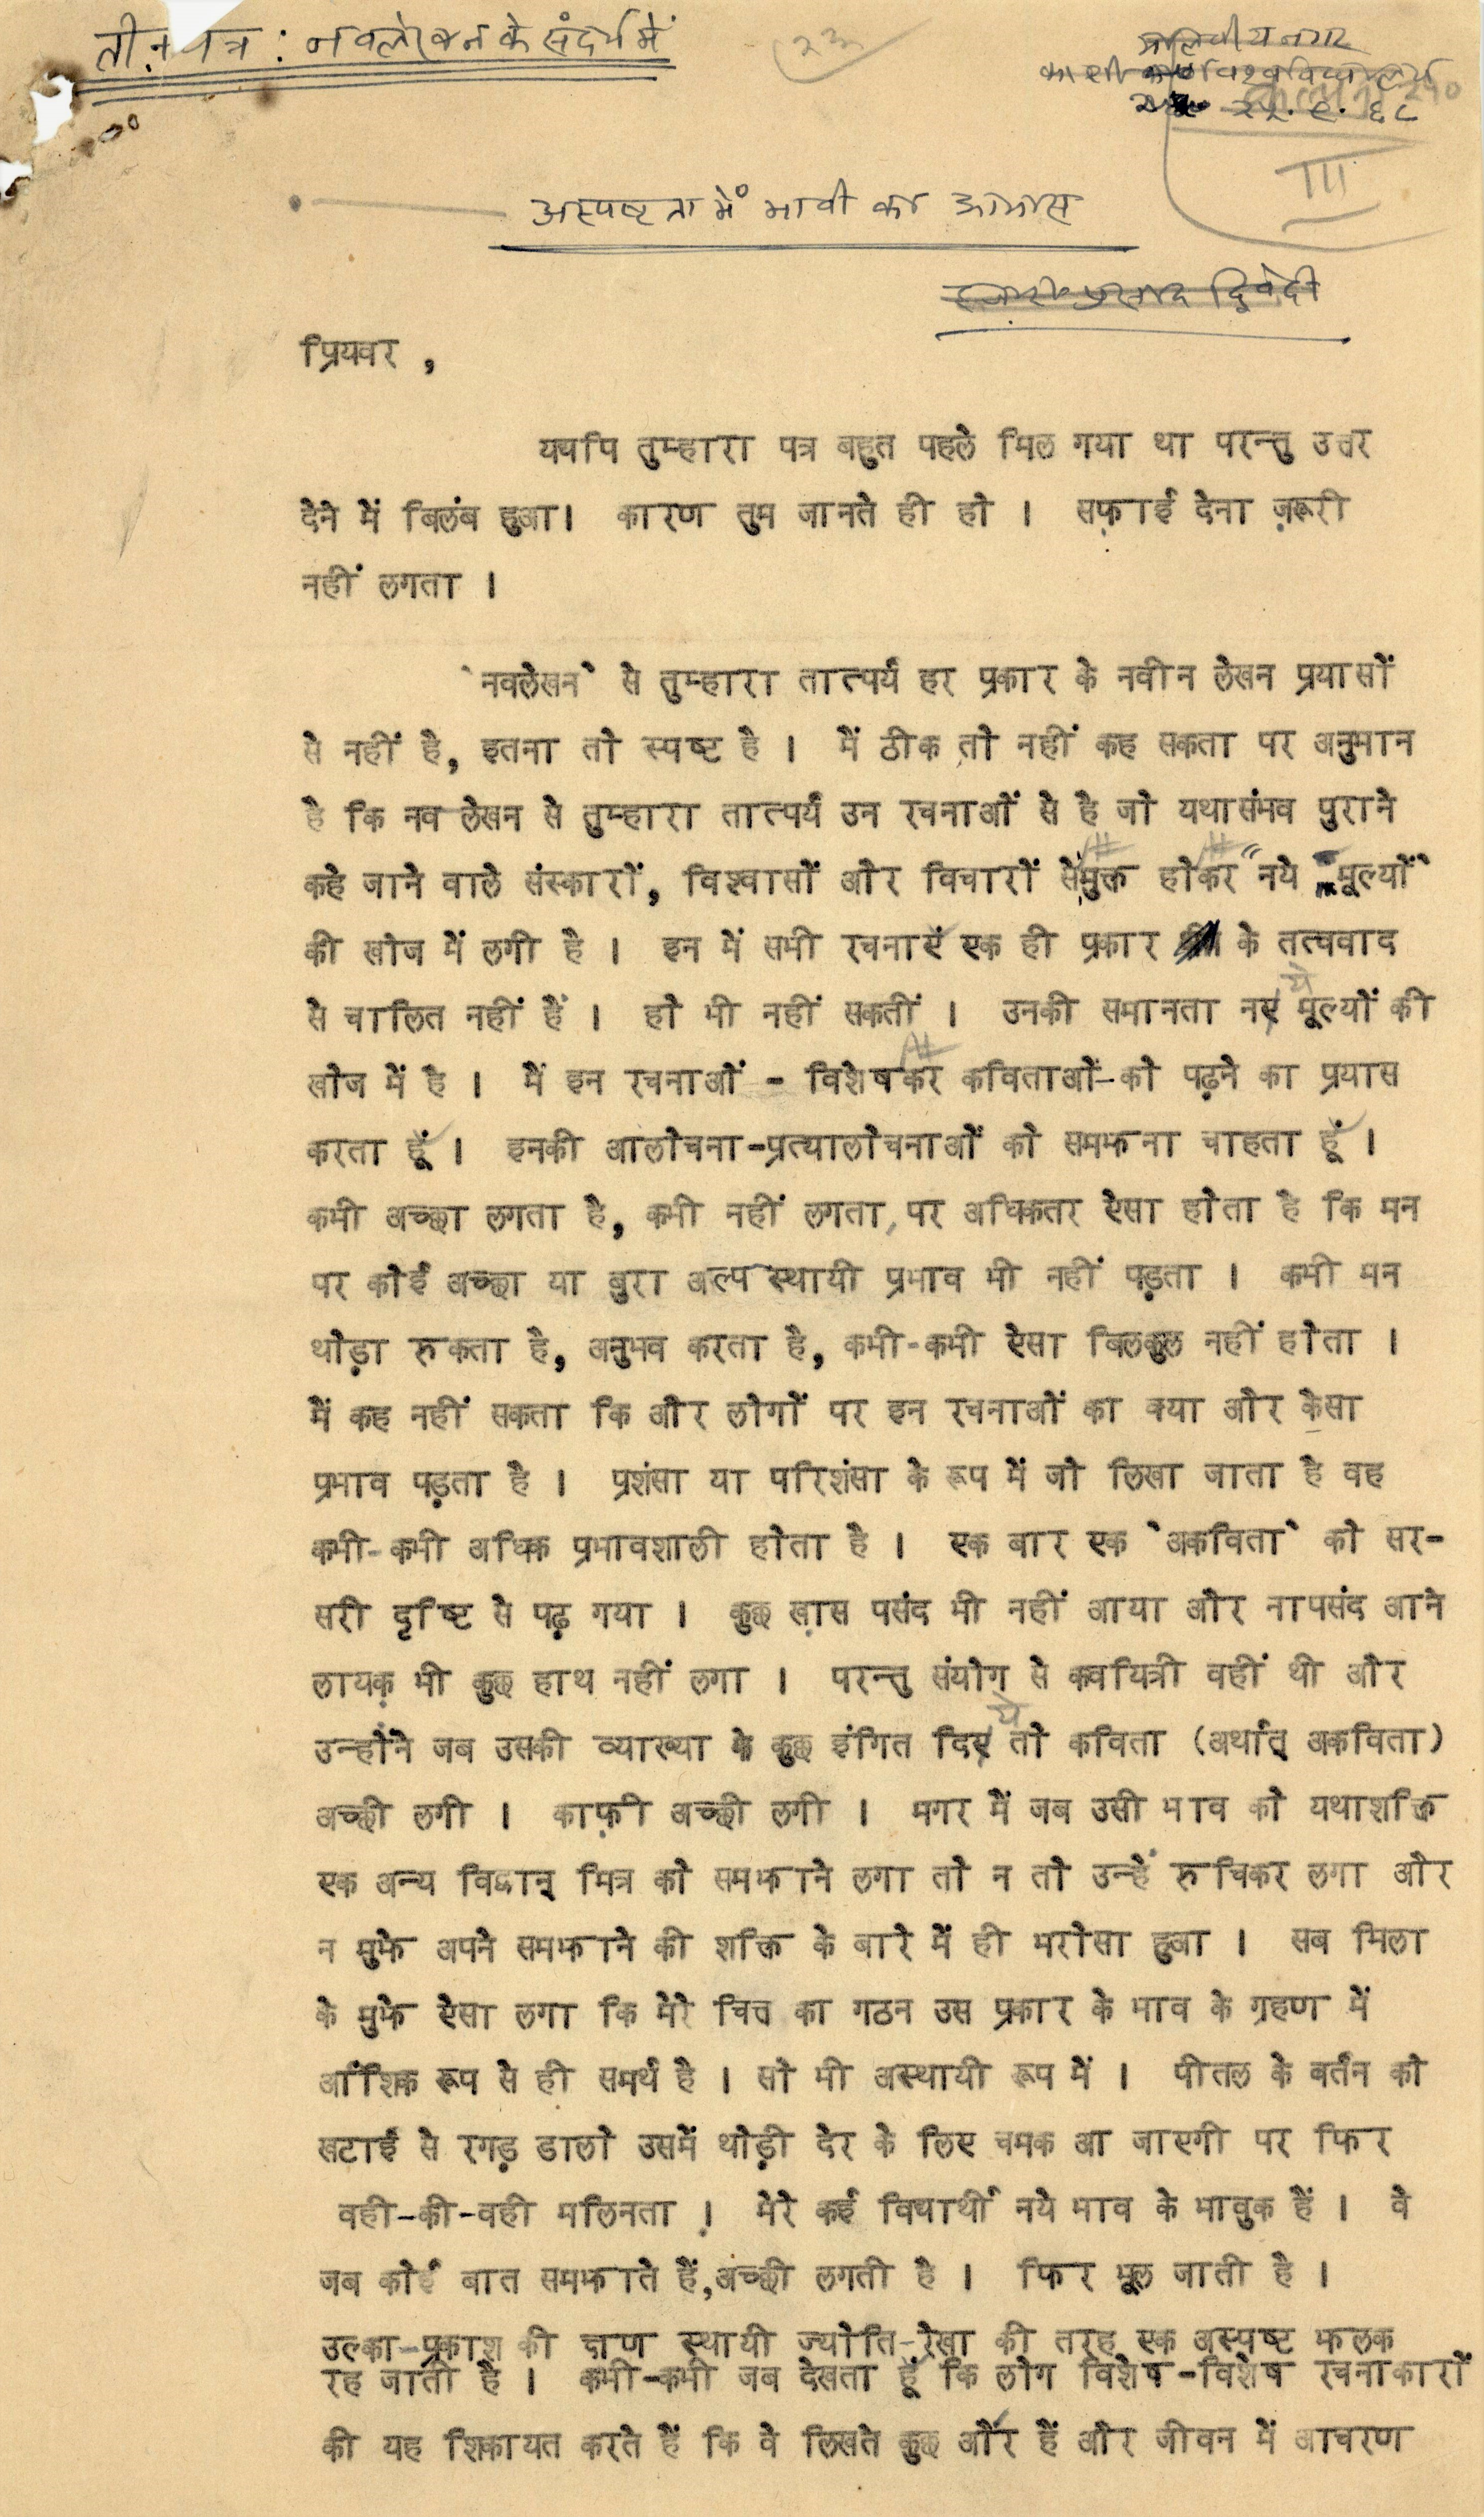 तीन पत्र : नवलेखन के संदर्भ में
२३
मालवीय नगर
काशी विश्वविद्यालय
२५. ९. ६८
III
अस्पष्टता में भावी का आभास
हजारी प्रसाद द्विवेदी
प्रियवर ,
यद्यपि तुम्हारा पत्र बहुत पहले मिल गया था परन्तु उत्तर
देने में विलंब हुआ। कारण तुम जानते ही हो । सफ़ाई देना ज़रूरी
नहीं लगता ।
`नवलेखन` से तुम्हारा तात्पर्य हर प्रकार के नवीन लेखन प्रयासों
से नहीं है, इतना तो स्पष्ट है । मैं ठीक तो नहीं कह सकता पर अनुमान
है कि नव लेखन से तुम्हारा तात्पर्य उन रचनाओं से है जो यथासंभव पुराने
कहे जाने वाले संस्कारों, विश्वासों और विचारों से मुक्त होकर "नये मूल्यों`
की खोज में लगी है । इन में सभी रचनाएं एक ही प्रकार के तत्ववाद
से चालित नहीं हैं । हो भी नहीं सकतीं । उनकी समानता नये मूल्यों की
खोज में है । मैं इन रचनाओं - विशेषकर कविताओं-को पढ़ने का प्रयास
करता हूं । इनकी आलोचना-प्रत्यालोचनाओं को समझना चाहता हूं ।
कभी अच्छा लगता है, कभी नहीं लगता, पर अधिकतर ऐसा होता है कि मन
पर कोई अच्छा या बुरा अल्प स्थायी प्रभाव भी नहीं पड़ता । कभी मन
थोड़ा रुकता है, अनुभव करता है, कभी-कभी ऐसा बिलकुल नहीं होता ।
मैं कह नहीं सकता कि और लोगों पर इन रचनाओं का क्या और कैसा
प्रभाव पड़ता है । प्रशंसा या परिशंसा के रूप में जो लिखा जाता है वह
कभी-कभी अधिक प्रभावशाली होता है । एक बार एक `अकविता` को सर-
सरी दृष्टि से पढ़ गया । कुछ ख़ास पसंद भी नहीं आया और नापसंद आने
लायक़ भी कुछ हाथ नहीं लगा । परन्तु संयोग से कवयित्री वहीं थी और
उन्होंने जब उसकी व्याख्या के कुछ इंगित दिये तो कविता (अर्थात् अकविता)
अच्छी लगी । काफ़ी अच्छी लगी । मगर मैं जब उसी भाव को यथाशक्ति
एक अन्य विद्वान् मित्र को समझाने लगा तो न तो उन्हें रुचिकर लगा और
न मुझे अपने समझाने की शक्ति के बारे में ही भरोसा हुआ । सब मिला
के मुझे ऐसा लगा कि मेरे चित्त का गठन उस प्रकार के भाव के ग्रहण में
आंशिक रूप से ही समर्थ है । सो भी अस्थायी रूप में । पीतल के बर्तन को
खटाई से रगड़ डालो उसमें थोड़ी देर के लिए चमक आ जाएगी पर फिर
वही-की-वही मलिनता ! मेरे कई विद्यार्थी नये भाव के भावुक हैं । वे
जब कोई बात समझाते हैं, अच्छी लगती है । फिर भूल जाती है ।
उल्का-प्रकाश की क्षण स्थायी ज्योति-रेखा की तरह एक अस्पष्ट झलक
रह जाती है । कभी-कभी जब देखता हूं कि लोग विशेष-विशेष रचनाकारों
की यह शिकायत करते हैं कि वे लिखते कुछ और हैं और जीवन में आचरण